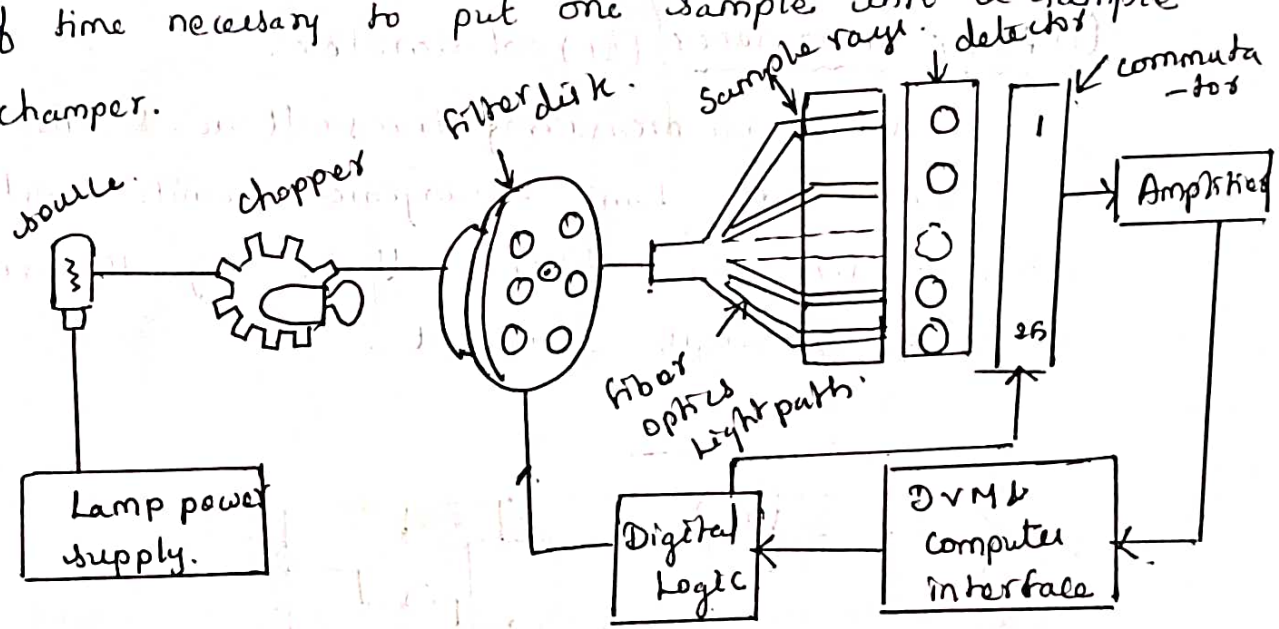 f time necessary to put one sample
champer.
source.
chopper
filter disk.
sample rays.
detector
commuta
-tor
1
Amplifier
fiber
optics
Light path.
Lamp power
supply.
Digital
Logic
DVM &
computer
interface